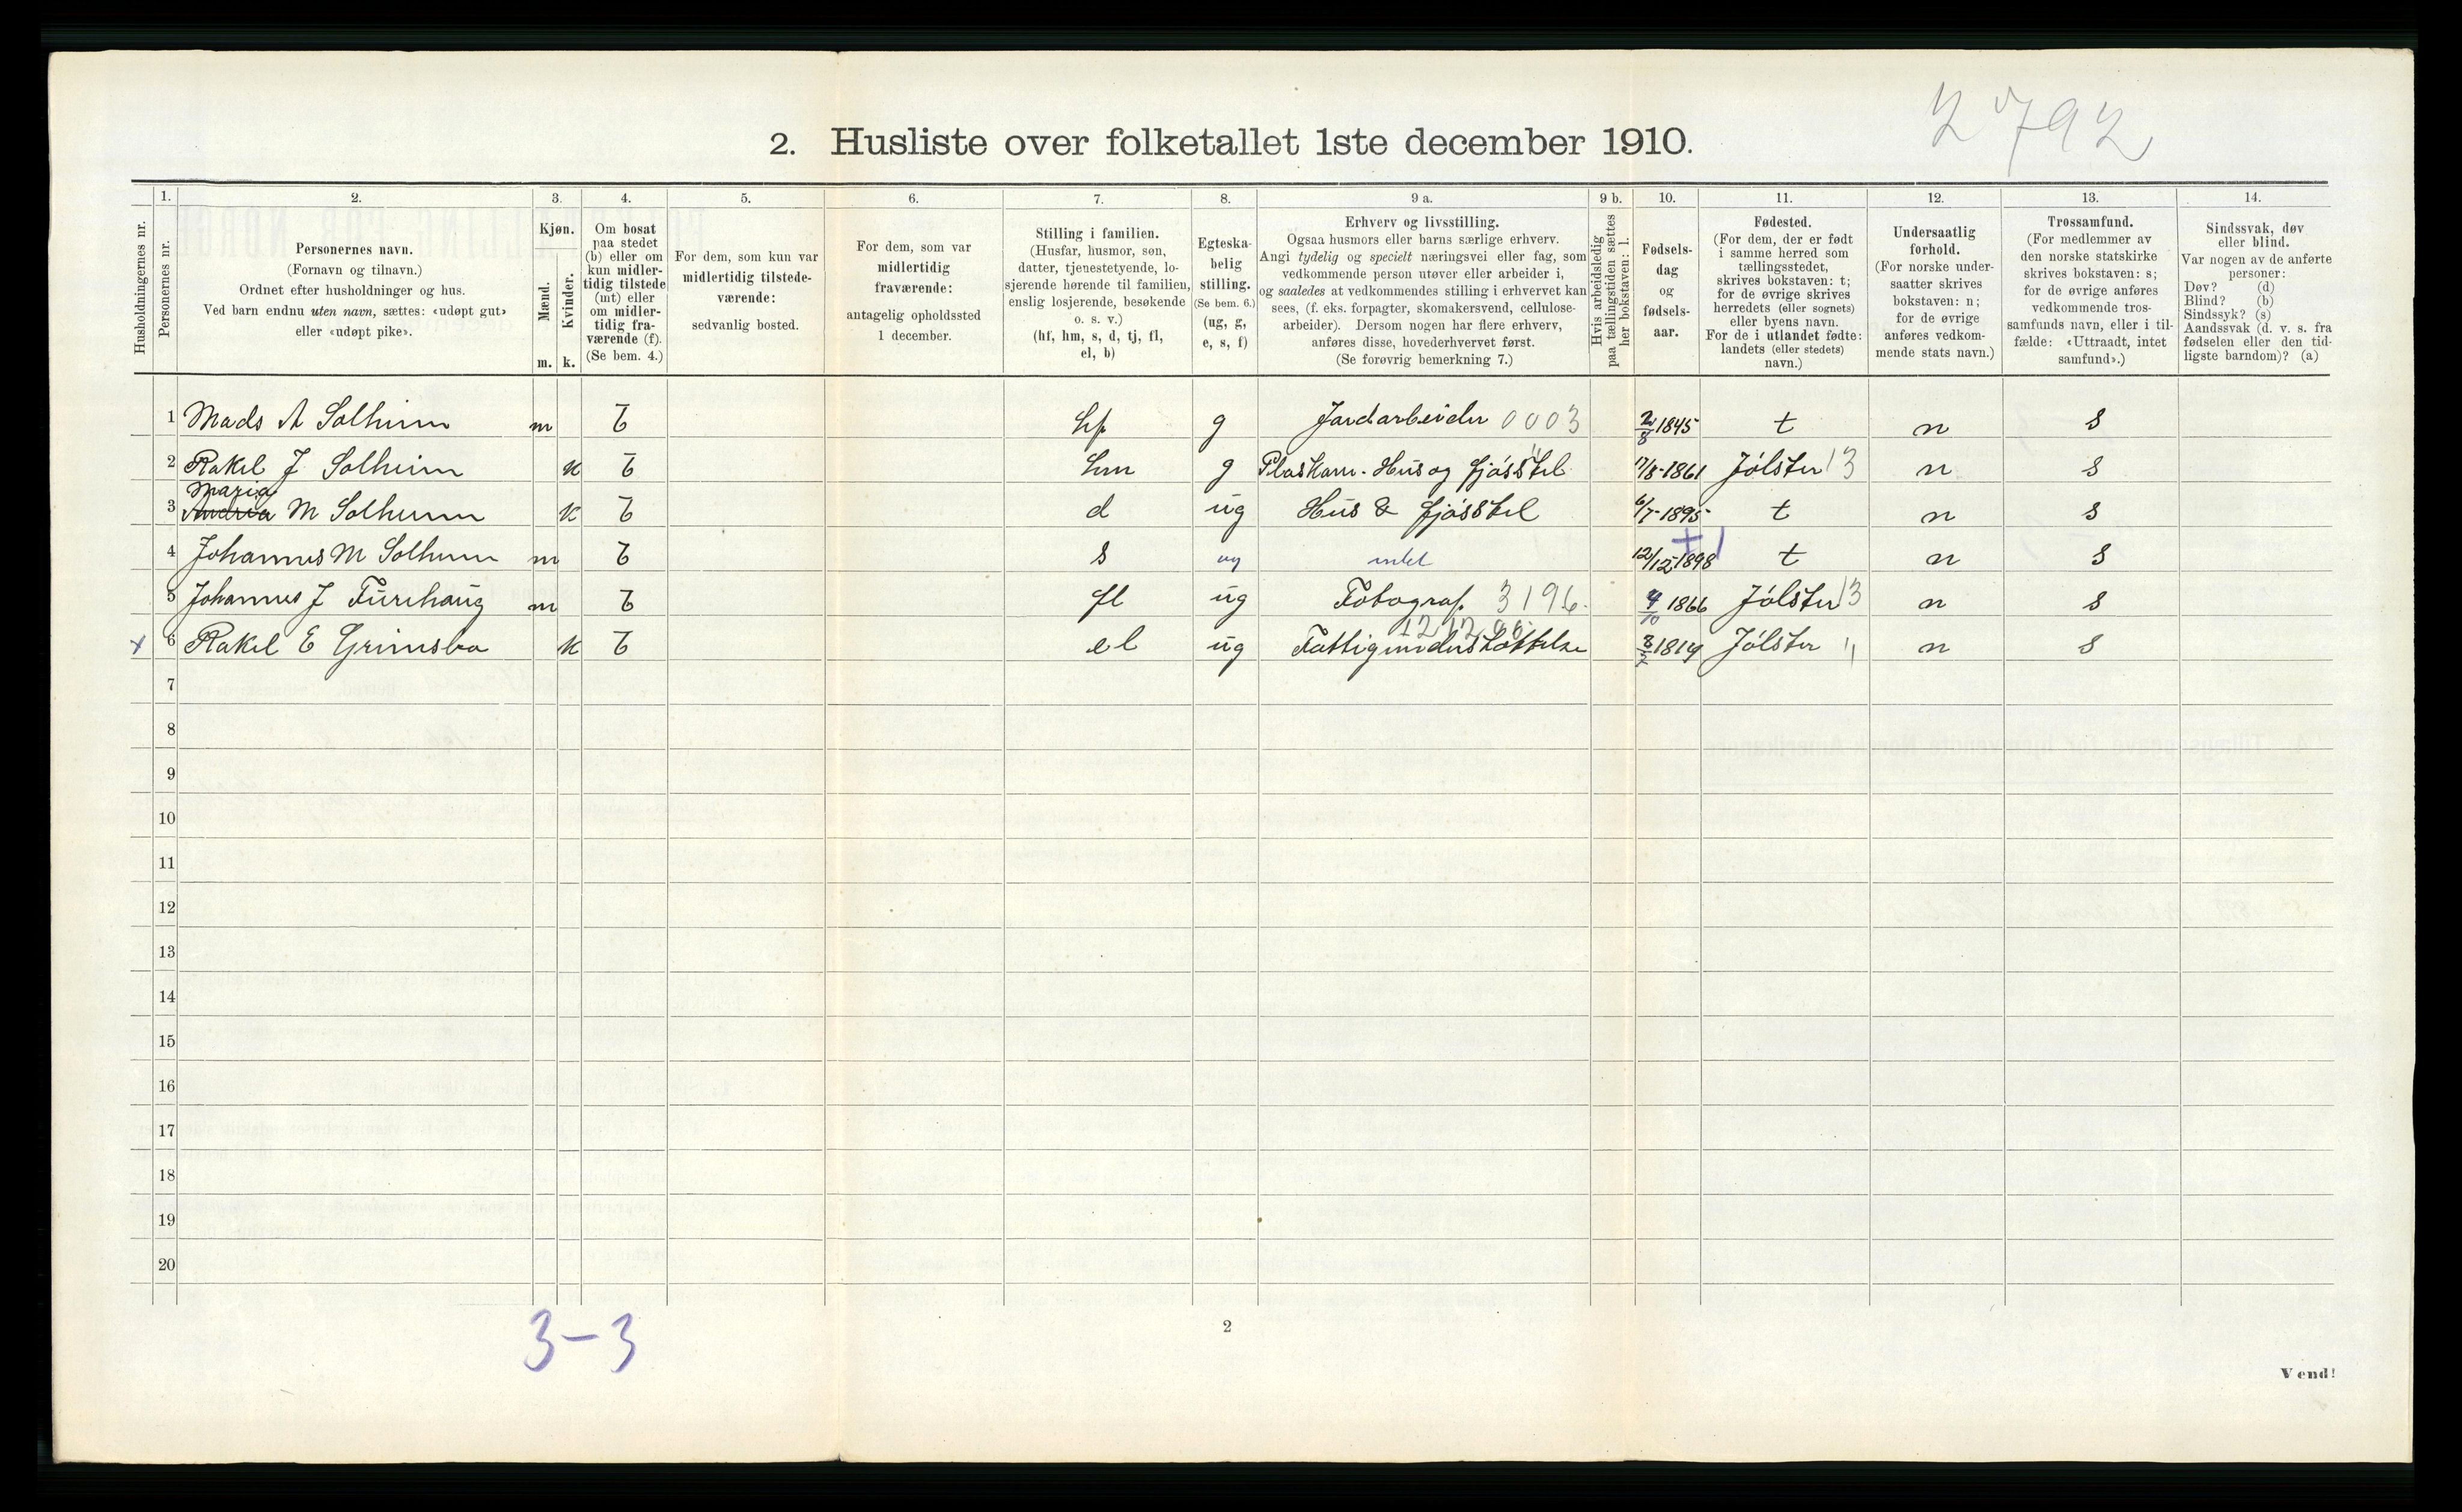 2792
2. Husliste over folketallet 1ste december 1910.
Husholdningernes nr.
1. Personernes nr.
2. Personernes navn.
(Fornavn og tilnavn.)
Ordnet efter husholdninger og hus.
Ved barn endnu uten navn, sættes: «udøpt gut»
eller «udøpt pike».
3. Kjøn.
Mænd. m.
Kvinder. k.
4. Om bosat
paa stedet
(b) eller om
kun midler-
tidig tilstede
(mt) eller
om midler-
tidig fra-
værende (f).
(Se bem. 4.)
5. For dem, som kun var
midlertidig tilstede-
værende:
sedvanlig bosted.
6. For dem, som var
midlertidig
fraværende:
antagelig opholdssted
1 december.
7. Stilling i familien.
(Husfar, husmor, søn,
datter, tjenestetyende, lo-
sjerende hørende til familien,
enslig losjerende, besøkende
o. s. v.)
(hf, hm, s, d, tj, fl,
el, b)
8. Egteska-
belig
stilling.
(Se bem. 6.)
(ug, g,
e, s, f)
9 a. Erhverv og livsstilling.
Ogsaa husmors eller barns særlige erhverv.
Angi tydelig og specielt næringsvei eller fag, som
vedkommende person utøver eller arbeider i,
og saaledes at vedkommendes stilling i erhvervet kan
sees, (f. eks. forpagter, skomakersvend, cellulose-
arbeider). Dersom nogen har flere erhverv,
anføres disse, hovederhvervet først.
(Se forøvrig bemerkning 7.)
9 b. Hvis arbeidsledig
paa tællingstiden sættes
her bokstaven: l.
10. Fødsels-
dag
og
fødsels-
aar.
11. Fødested.
(For dem, der er født
i samme herred som
tællingsstedet,
skrives bokstaven: t;
for de øvrige skrives
herredets (eller sognets)
eller byens navn.
For de i utlandet fødte:
landets (eller stedets)
navn.)
12. Undersaatlig
forhold.
(For norske under-
saatter skrives
bokstaven: n;
for de øvrige
anføres vedkom-
mende stats navn.)
13. Trossamfund.
(For medlemmer av
den norske statskirke
skrives bokstaven: s;
for de øvrige anføres
vedkommende tros-
samfunds navn, eller i til-
fælde: «Uttraadt, intet
samfund».)
14. Sindssvak, døv
eller blind.
Var nogen av de anførte
personer:
Døv? (d)
Blind? (b)
Sindssyk? (s)
Aandssvak (d. v. s. fra
fødselen eller den tid-
ligste barndom)? (a)
1 Mads A Solheim m b hf g Jordarbeider 0003 2/8 1845 t n s
2 Rakel J Solheim k b hm g Hus og fjósstel 17/8-1861 Jólster 13 n s
Maria
3 Andrea M Solheim k b d ug Hus & fjósstel 6/7-1895 t n s
4 Johannes M Solheim m b s ug intet 12/12 1898 t n s
5 Johannes J Furehaug m b fl ug Fotograf 3196 4/10 1866 Jólster 13 n s
x 6 Rakel E Grimsbo k b el ug Fattigunderstøttelse 1814 Jólster 11 n s
7
8
9
10
11
12
13
14
15
16
17
18
19
20
3-3
2
Vend!